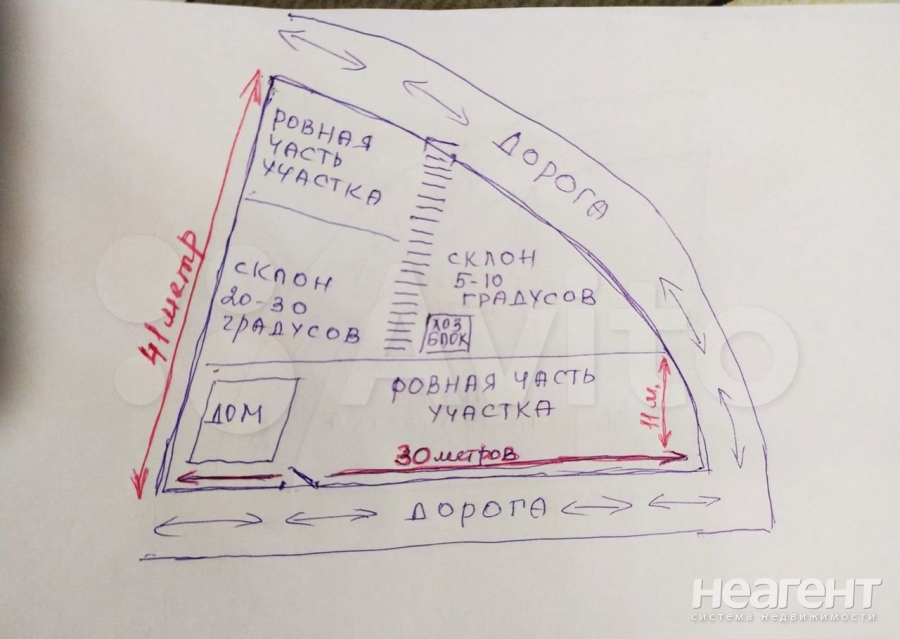 ДОРОГА
РОВНАЯ
ЧАСТЬ
УЧАСТКА
41 метр
СКЛОН
20-30
ГРАДУСОВ
СКЛОН
5-10
ГРАДУСОВ
ХОЗ
БЛОК
РОВНАЯ ЧАСТЬ
УЧАСТКА
11 м.
ДОМ
30 метров
ДОРОГА
Avito
неагент
система недвижимости